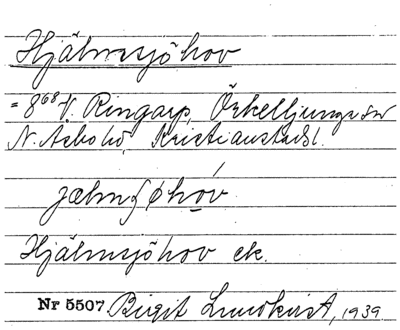 Hjälmsjöhov
= 8⁶⁸ V. Ringarp, Örkelljunga sn
N. Åsbo hd, Kristianstads l.
jælmʃøhóv
Hjälmsjöhov ek.
Nr 5507. Birgit Lundkvist, 1939